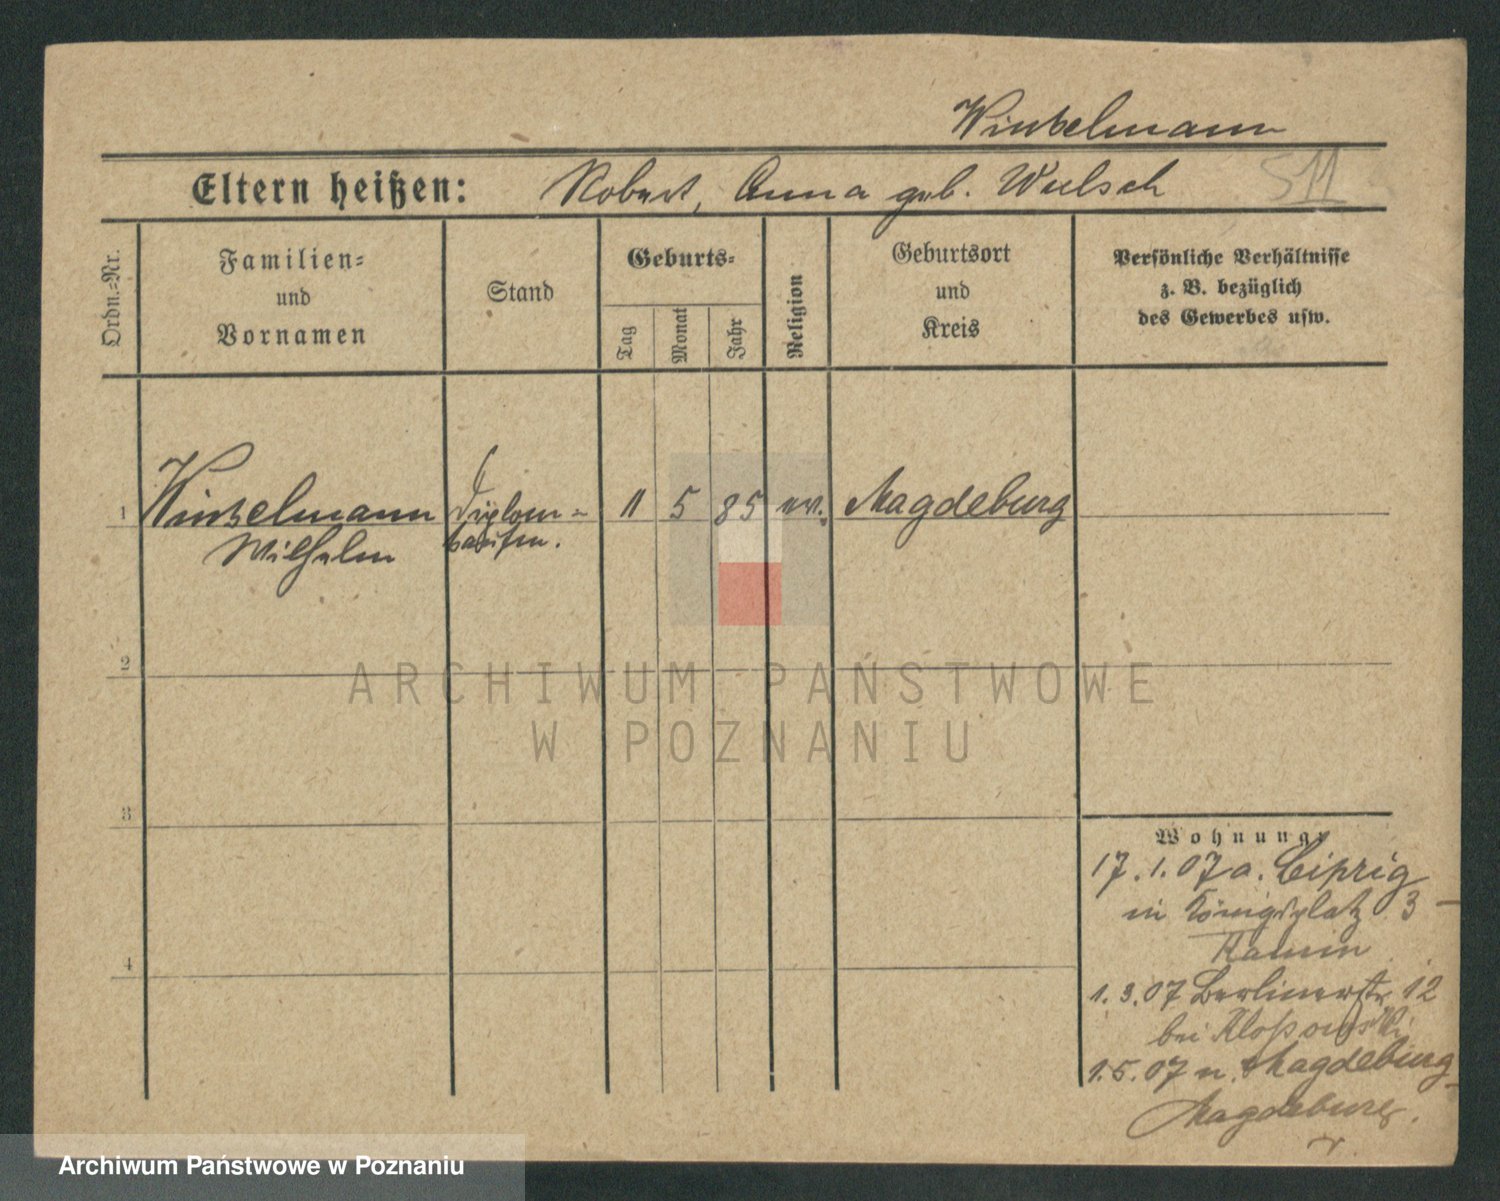 Winkelmann
Eltern heißen: Robert, Anna geb. Wulsch
511
Ordn.-Nr.
Familien-
und
Vornamen
Stand
Geburts-
Tag
Monat
Jahr
Religion
Geburtsort
und
Kreis
Persönliche Verhältnisse
z. B. bezüglich
des Gewerbes usw.
1 Winkelmann Diplom- 11 5 85 ev. Magdeburg
Wilhelm kaufm.
2
ARCHIWUM PAŃSTWOWE
W POZNANIU
3
Wohnung:
17.1.07 a. Leipzig
in Königsplatz 3
Hamm
4
1.3.07 Berlinerstr 12
bei Kloßowski
1.5.07 n. Magdeburg
Magdeburg.
Archiwum Państwowe w Poznaniu